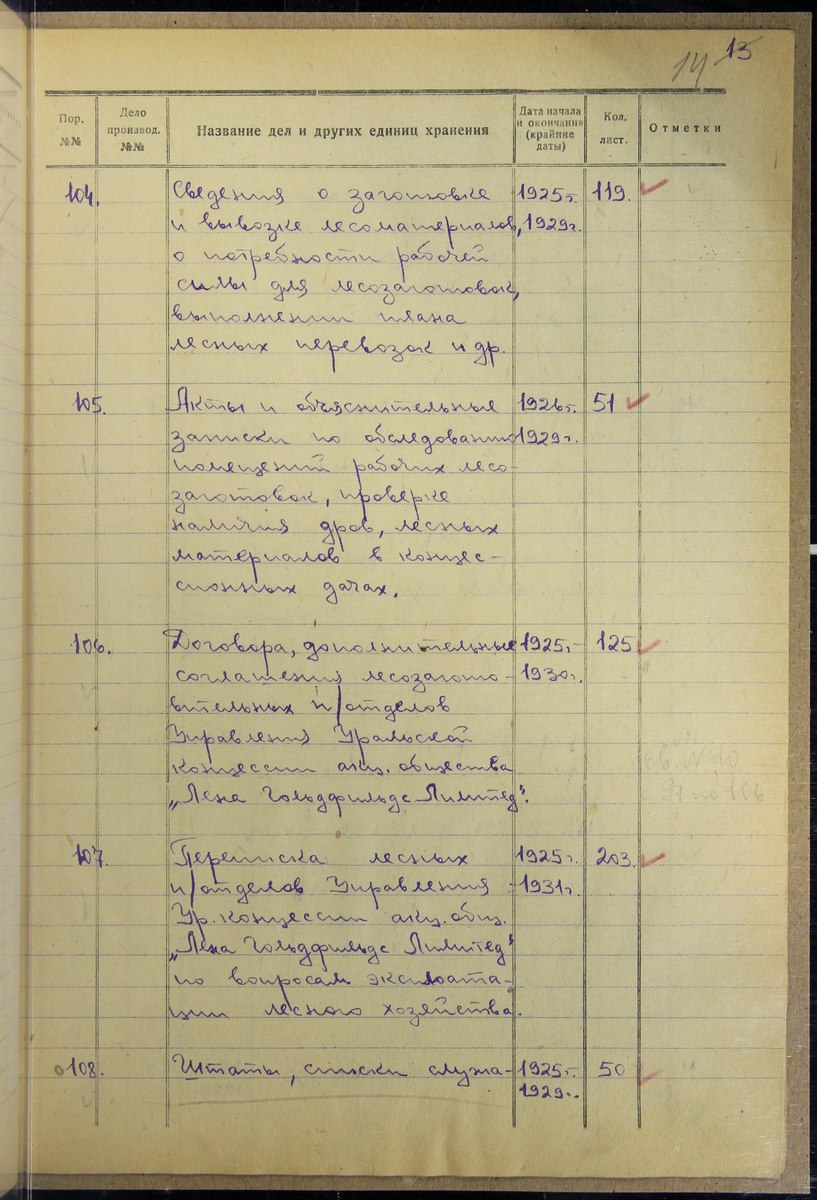 14 13
Пор. №№
Дело производ. №№
Название дел и других единиц хранения
Дата начала и окончания (крайние даты)
Кол. лист.
Отметки
104. Сведения о заготовке 1925г. 119.
и вывозке лесоматериалов, 1929г.
о потребности рабочей
силы для лесозаготовок,
выполнении плана
лесных перевозок и др.
105. Акты и объяснительные 1926г. 51
записки по обследованию 1929г.
помещений рабочих лесо-
заготовок, проверке
наличия дров, лесных
материалов в концес-
сионных дачах.
106. Договора, дополнительные 1925г.- 125
соглашения лесозагото- 1930г.
вительных п/отделов
Управления Уральской
концессии акц. общества
„Лена Гольдфильдс Лимитед".
107. Переписка лесных 1925г. 203.
п/отделов Управления -1931г.
Ур. концессии акц. общ.
„Лена Гольдфильдс Лимитед"
по вопросам эксплоата-
ции лесного хозяйства.
108. Штаты, списки служа- 1925г. 50
1929г.